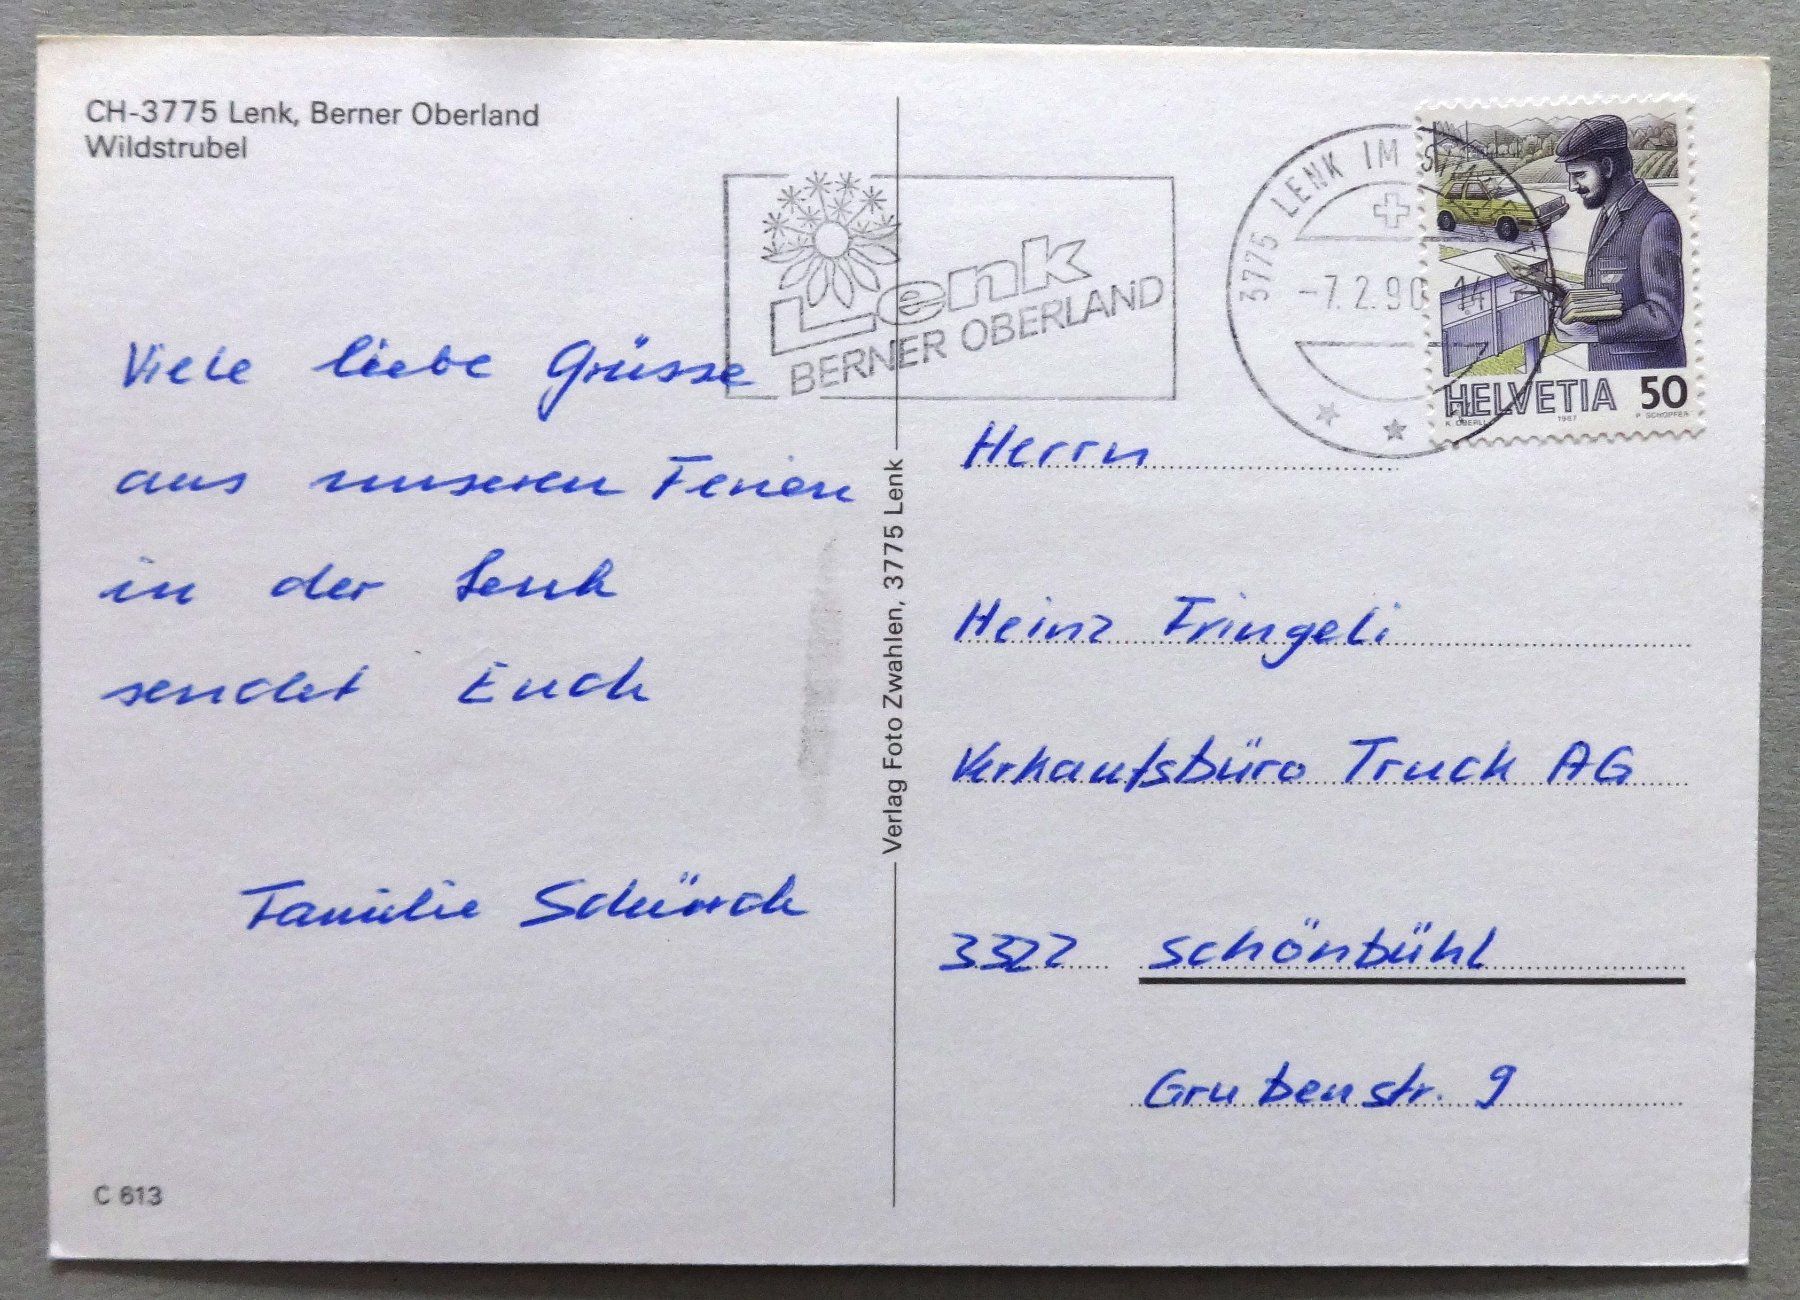 CH-3775 Lenk, Berner Oberland
Wildstrubel
Viele liebe Grüsse
aus unseren Ferien
in der Lenk
sendet Euch
Familie Schürch
C 613
Verlag Foto Zwahlen, 3775 Lenk
Lenk
BERNER OBERLAND
3775 LENK IM S
-7.2.90 14
HELVETIA 50
K. OBERLI 1987 P. SCHOPFER
Herrn
Heinz Fringeli
Verkaufsbüro Truck AG
3322 Schönbühl
Grubenstr. 9